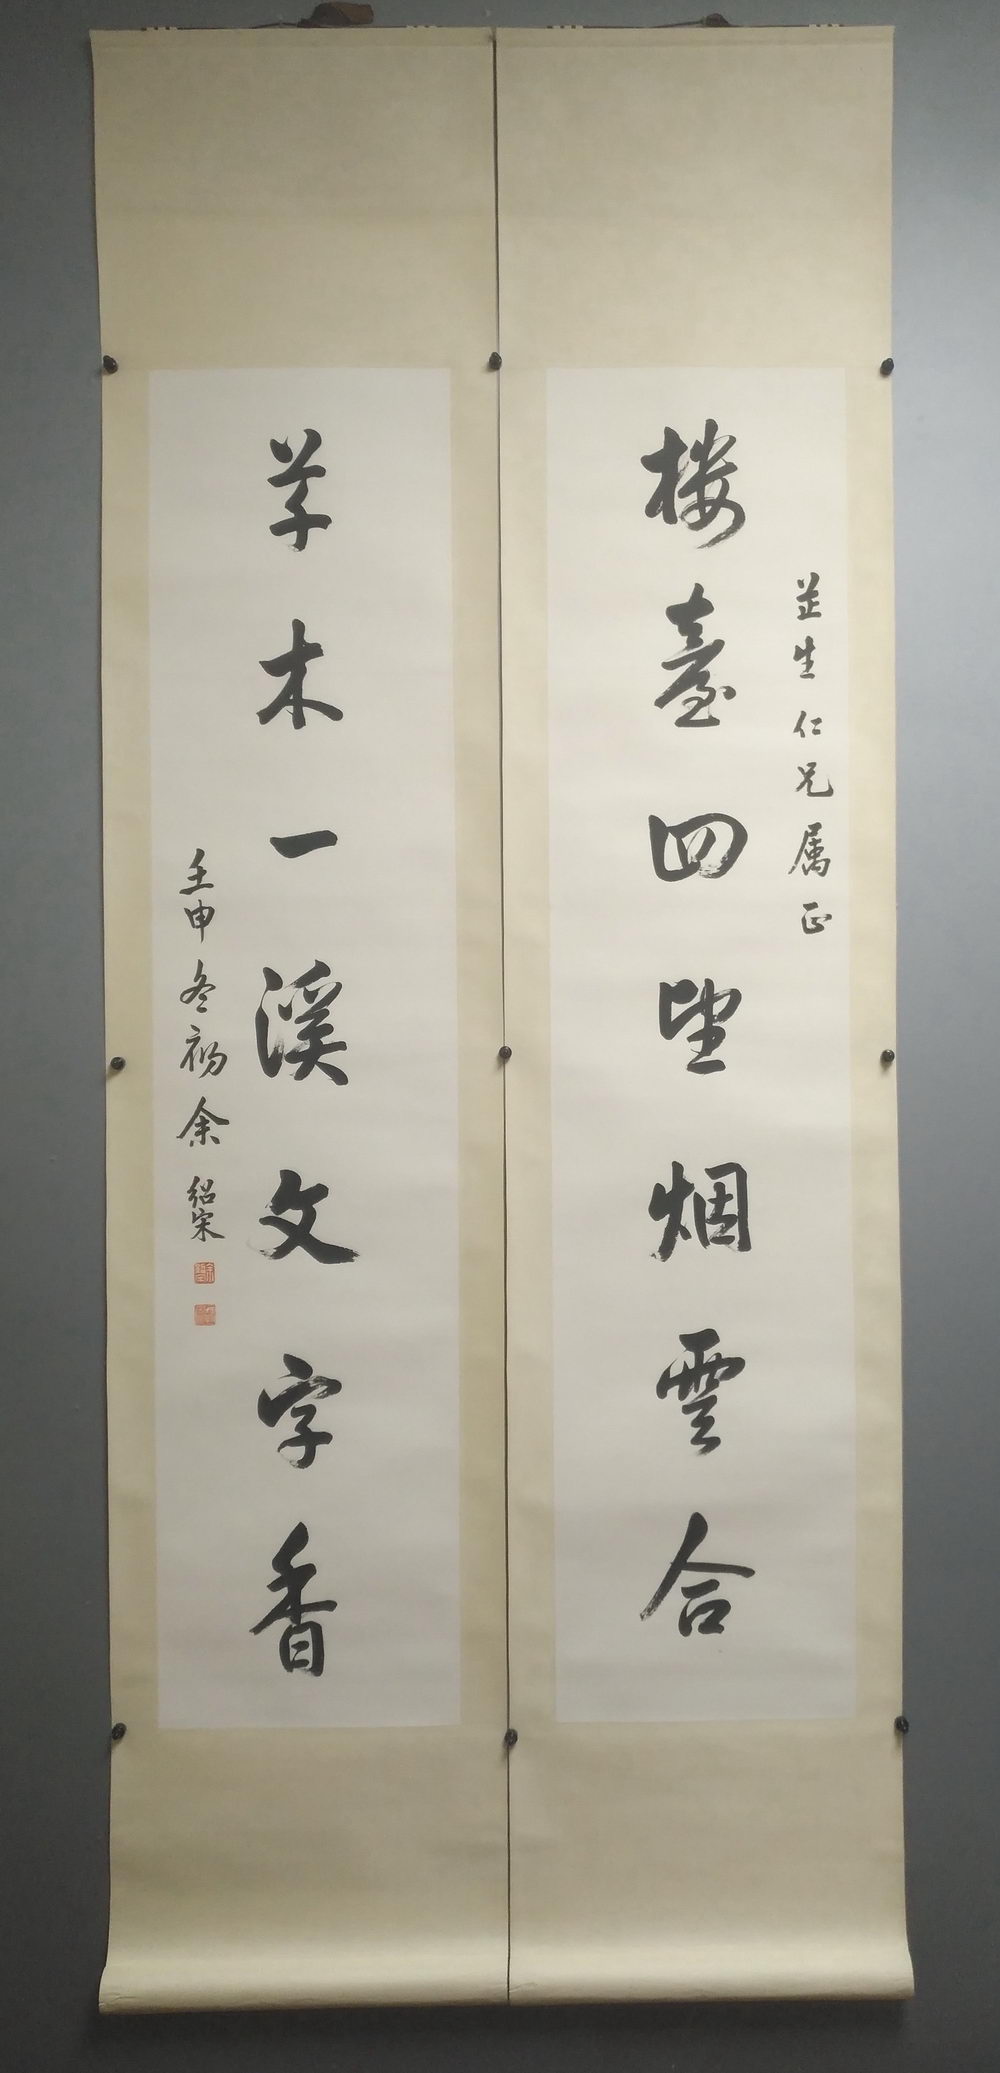 芷生仁兄属正
楼臺四望烟雲合
草木一溪文字香
壬申冬初余紹宋